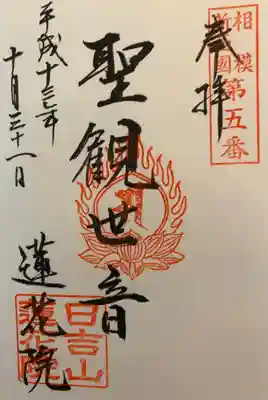 相模
國
第五番
奉拝
聖観世音
蓮花院
平成十三年
十月三十一日
日吉山
蓮花院